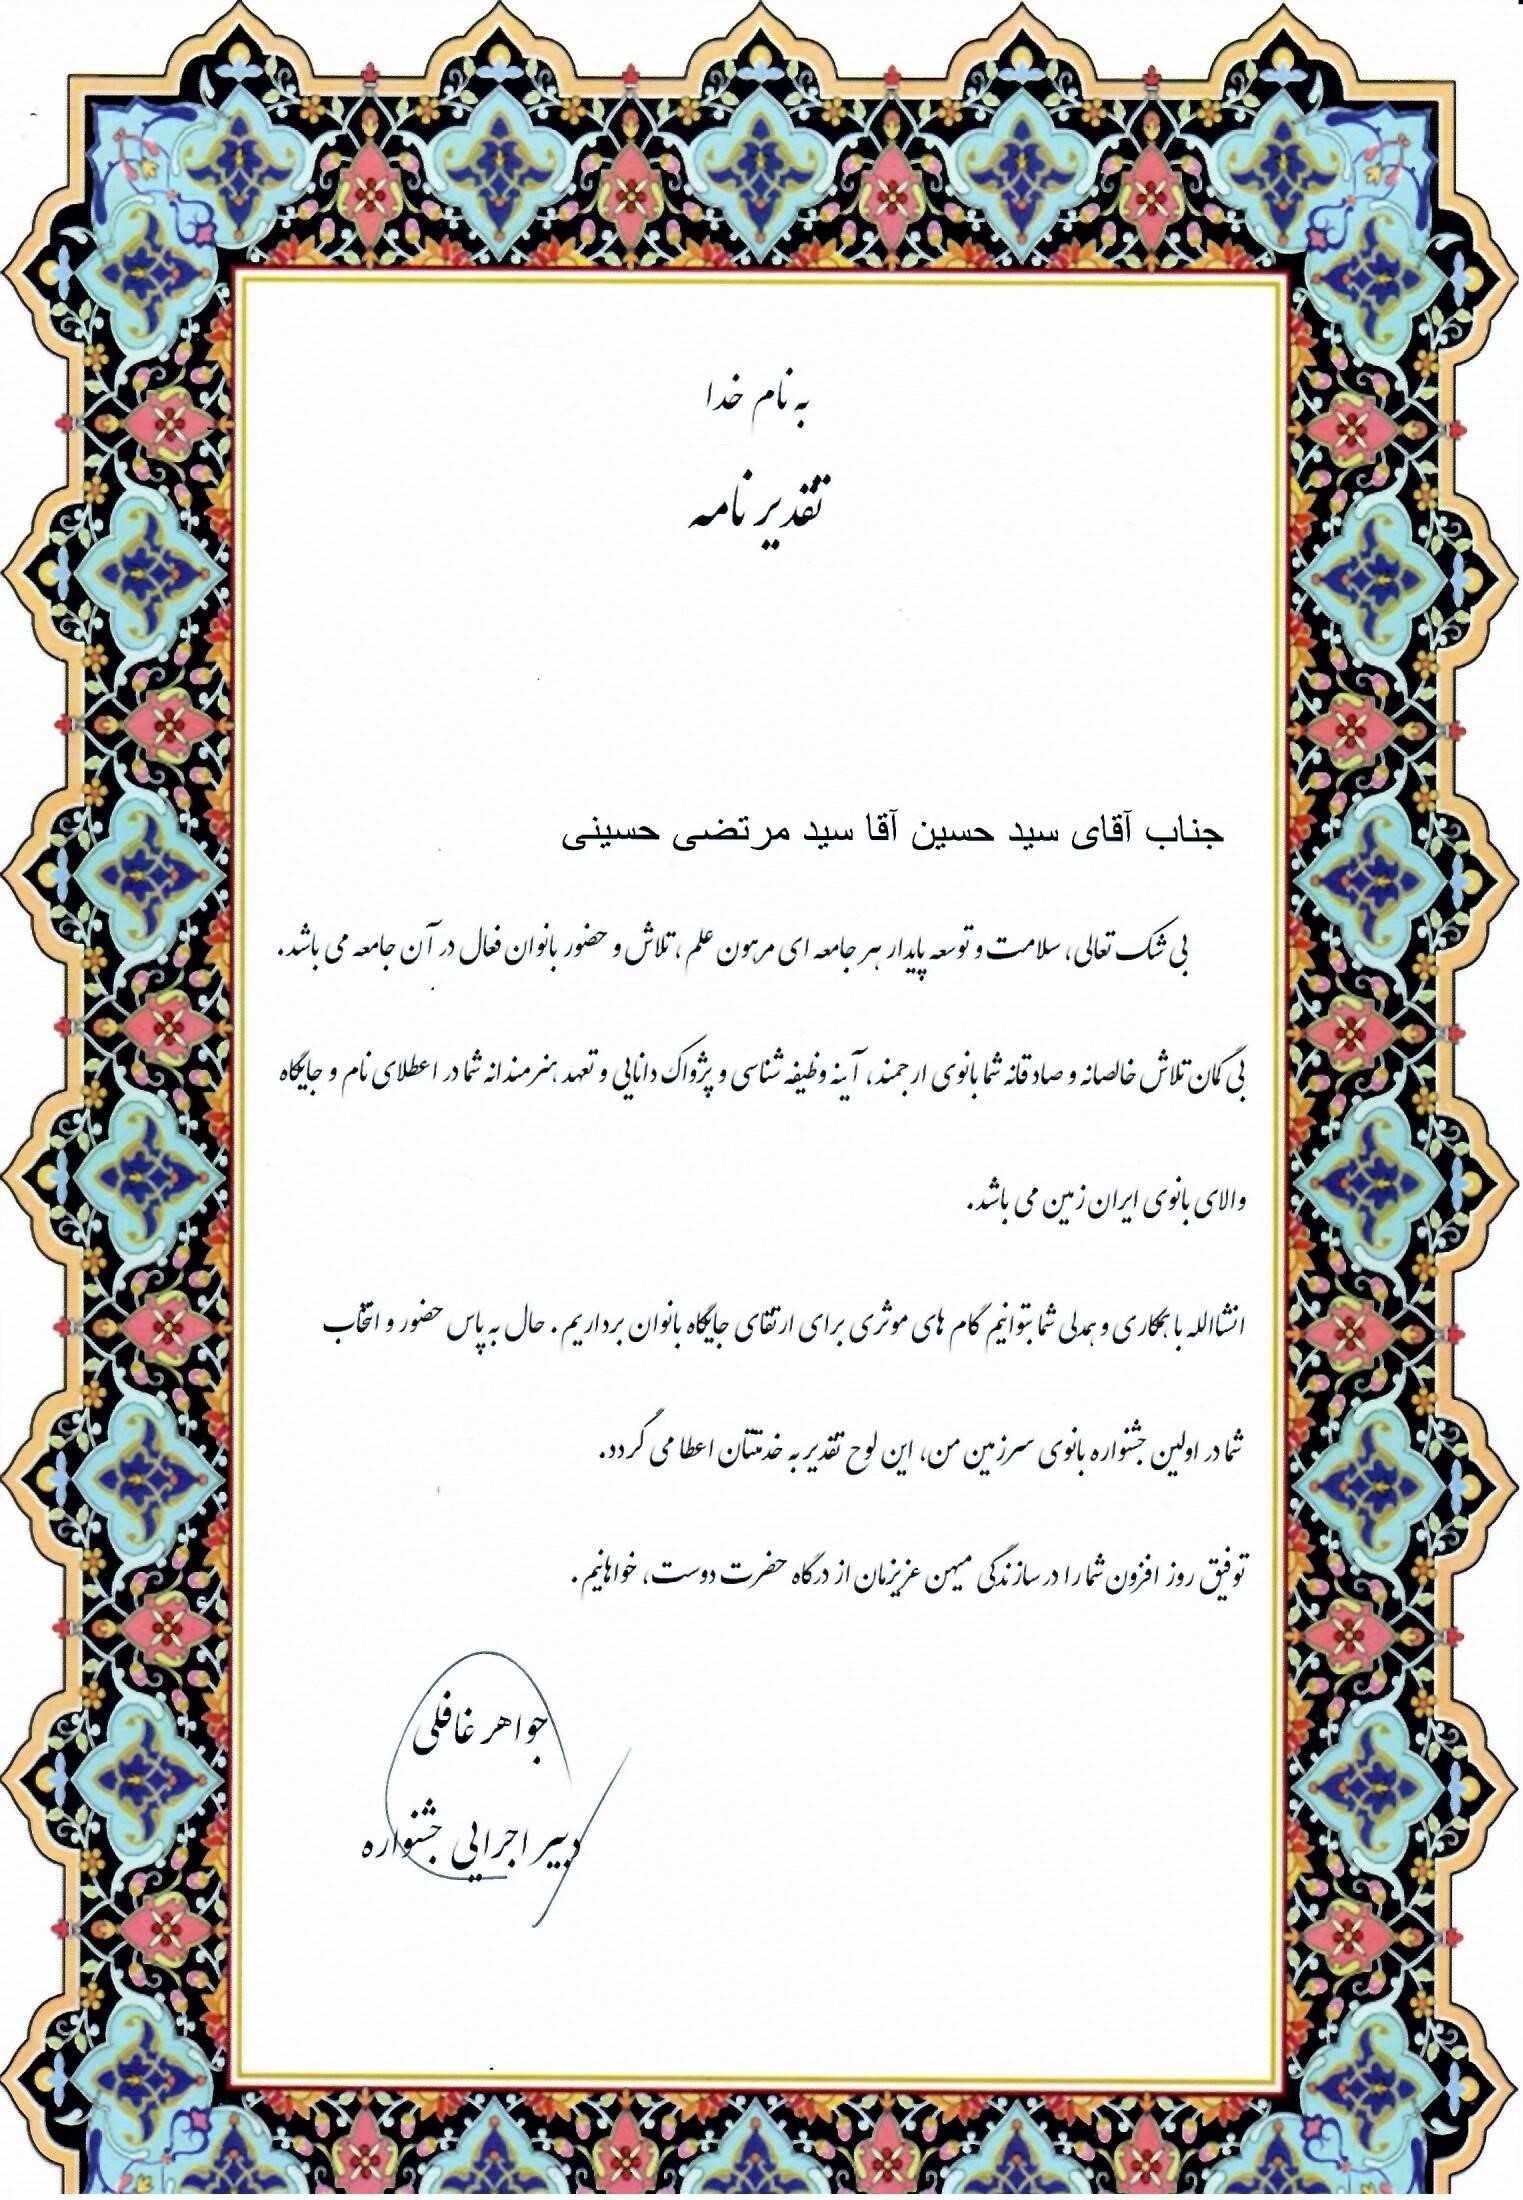 به نام خدا
تقدیر نامه
جناب آقای سید حسین آقا سید مرتضی حسینی
بی شک تعالی، سلامت و توسعه پایدار هر جامعه ای مرهون علم، تلاش و حضور بانوان فعال در آن جامعه می باشد.
بی گمان تلاش خالصانه و صادقانه شما بانوی ارجمند، آینه وظیفه شناسی و پژواک دانایی و تعهد هنرمندانه شما در اعطلای نام و جایگاه
والای بانوی ایران زمین می باشد.
انشاالله با همکاری و همدلی شما بتوانیم گام های موثری برای ارتقای جایگاه بانوان برداریم. حال به پاس حضور و انتخاب
شما در اولین جشنواره بانوی سرزمین من، این لوح تقدیر به خدمتتان اعطا می گردد.
توفیق روز افزون شما را در سازندگی میهن عزیزمان از درگاه حضرت دوست، خواهانیم.
جواهر غافلی
دبیر اجرایی جشنواره